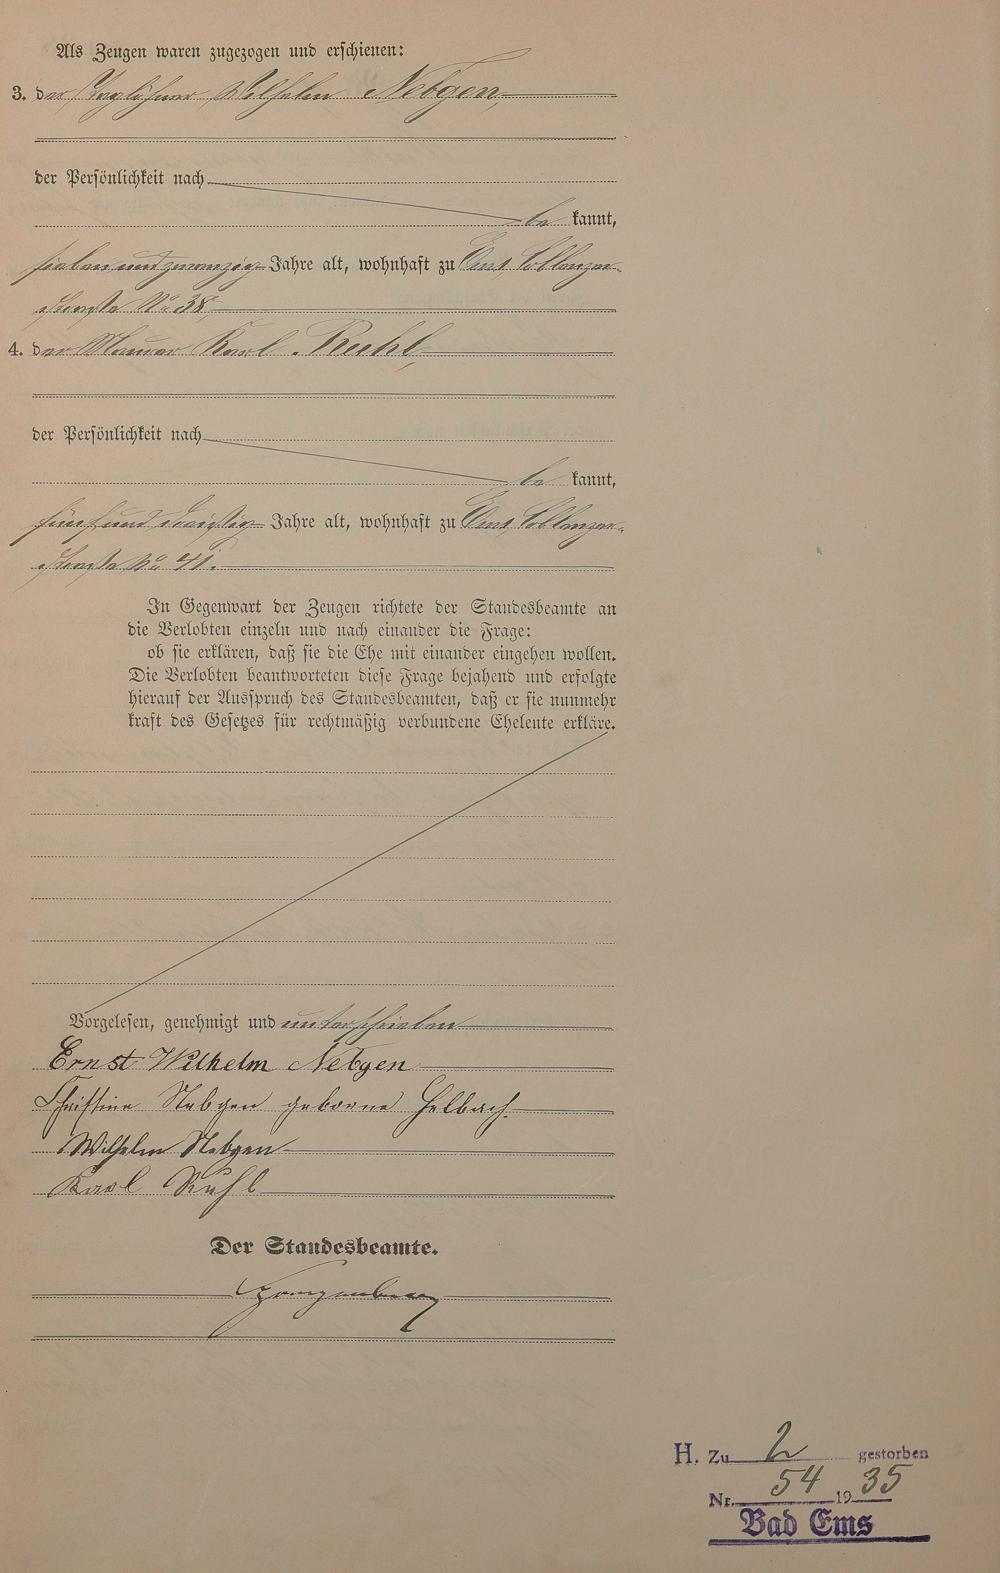 Als Zeugen waren zugezogen und erschienen:
3. der Taglöhner Wilhelm Nebgen,
der Persönlichkeit nach
be kannt,
sieben und zwanzig Jahre alt, wohnhaft zu Ems Coblenzer-
straße No 38,
4. der Maurer Karl Ruhl,
der Persönlichkeit nach
be kannt,
fünf und dreißig Jahre alt, wohnhaft zu Ems, Coblenzer-
straße No 41.
In Gegenwart der Zeugen richtete der Standesbeamte an
die Verlobten einzeln und nach einander die Frage:
ob sie erklären, daß sie die Ehe mit einander eingehen wollen.
Die Verlobten beantworteten diese Frage bejahend und erfolgte
hierauf der Ausspruch des Standesbeamten, daß er sie nunmehr
kraft des Gesetzes für rechtmäßig verbundene Eheleute erkläre.
Vorgelesen, genehmigt und unterschrieben
Ernst Wilhelm Nebgen
Christine Nebgen geborne Helbach.
Wilhelm Nebgen
Karl Ruhl
Der Standesbeamte.
H. Zu 2 gestorben
Nr. 54 1935
Bad Ems